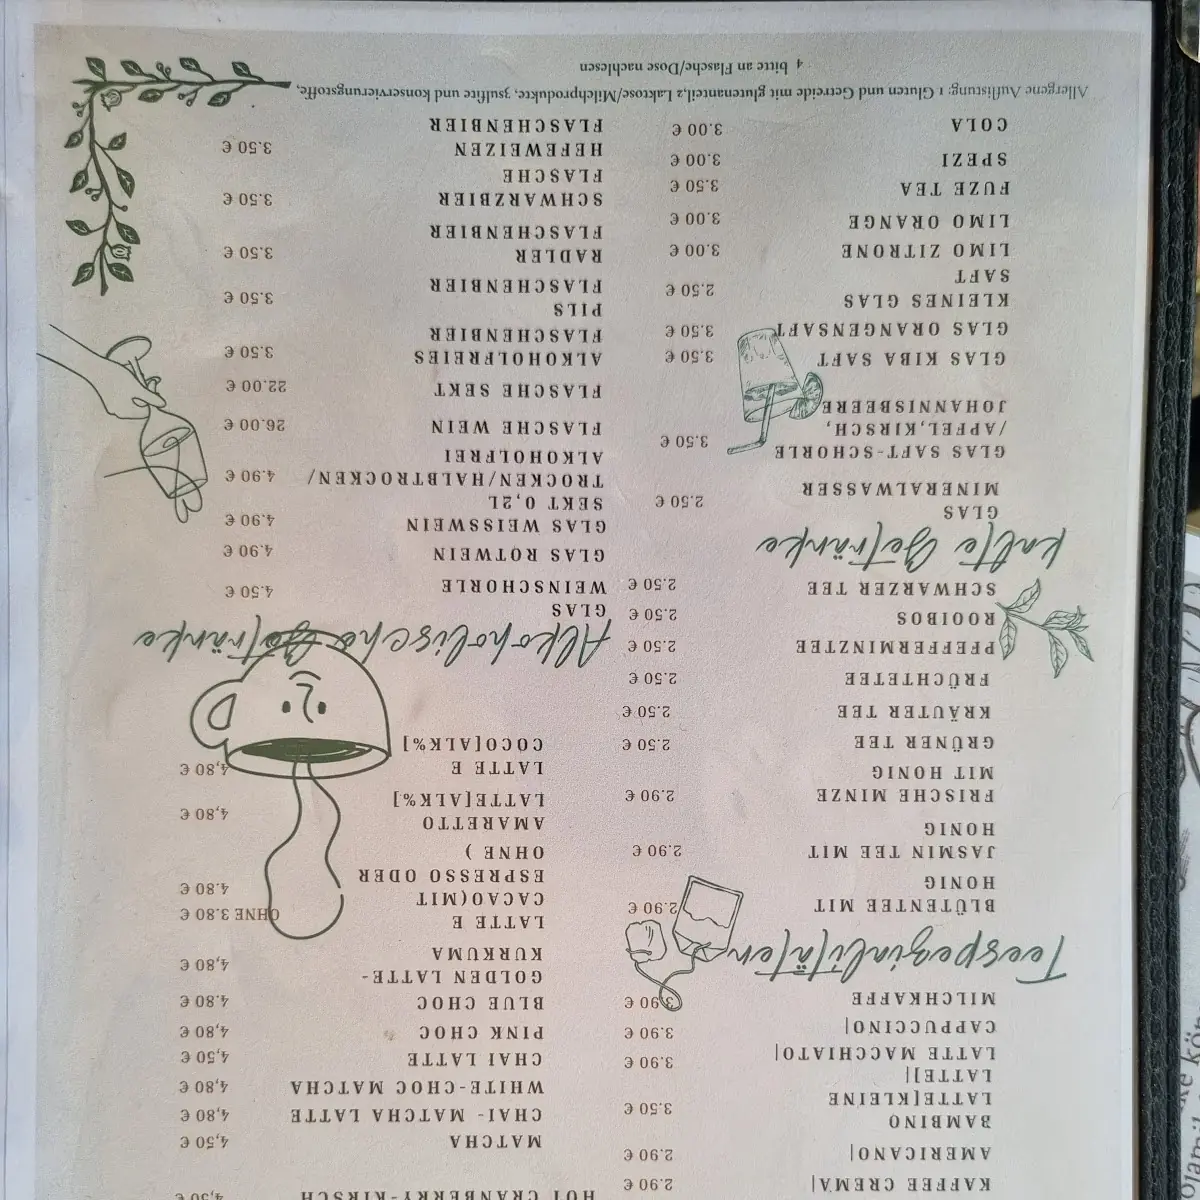 KAFFEE CREMA| 2.90 €
AMERICANO| 2.90 €
BAMBINO
LATTE[KLEINE 3.50 €
LATTE]|
LATTE MACCHIATO| 3.90 €
CAPPUCCINO| 3.90 €
MILCHKAFFE 3.90 €
Teespezialitäten
BLÜTENTEE MIT 2.90 €
HONIG
JASMIN TEE MIT 2.90 €
HONIG
FRISCHE MINZE 2.90 €
MIT HONIG
GRÜNER TEE 2.50 €
KRÄUTER TEE 2.50 €
FRÜCHTETEE 2.50 €
PFEFFERMINZTEE 2.50 €
ROOIBOS 2.50 €
SCHWARZER TEE 2.50 €
kalte Getränke
GLAS
MINERALWASSER 2.50 €
GLAS SAFT-SCHORLE
/APFEL,KIRSCH, 3.50 €
JOHANNISBEERE
GLAS KIBA SAFT 3.50 €
GLAS ORANGENSAFT 3.50 €
KLEINES GLAS 2.50 €
SAFT
LIMO ZITRONE 3.00 €
LIMO ORANGE 3.00 €
FUZE TEA 3.50 €
SPEZI 3.00 €
COLA 3.00 €
HOT CRANBERRY-KIRSCH 4,50 €
MATCHA 4,50 €
CHAI- MATCHA LATTE 4,80 €
WHITE-CHOC MATCHA 4,80 €
CHAI LATTE 4,50 €
PINK CHOC 4,80 €
BLUE CHOC 4.80 €
GOLDEN LATTE- 4,80 €
KURKUMA
LATTE E OHNE 3.80 €
CACAO(MIT
ESPRESSO ODER 4.80 €
OHNE )
AMARETTO 4,80 €
LATTE[ALK%]
LATTE E 4,80 €
COCO[ALK%]
Alkoholische Getränke
GLAS
WEINSCHORLE 4.50 €
GLAS ROTWEIN 4.90 €
GLAS WEISSWEIN 4.90 €
SEKT 0,2L
TROCKEN/HALBTROCKEN/ 4.90 €
ALKOHOLFREI
FLASCHE WEIN 26.00 €
FLASCHE SEKT 22.00 €
ALKOHOLFREIES 3.50 €
FLASCHENBIER
PILS 3.50 €
FLASCHENBIER
RADLER 3.50 €
FLASCHENBIER
SCHWARZBIER 3.50 €
FLASCHE
HEFEWEIZEN 3.50 €
FLASCHENBIER
Allergene Auflistung: 1 Gluten und Getreide mit glutenanteil,2 Laktose/Milchprodukte, 3sulfite und konservierungsstoffe,
4 bitte an Flasche/Dose nachlesen